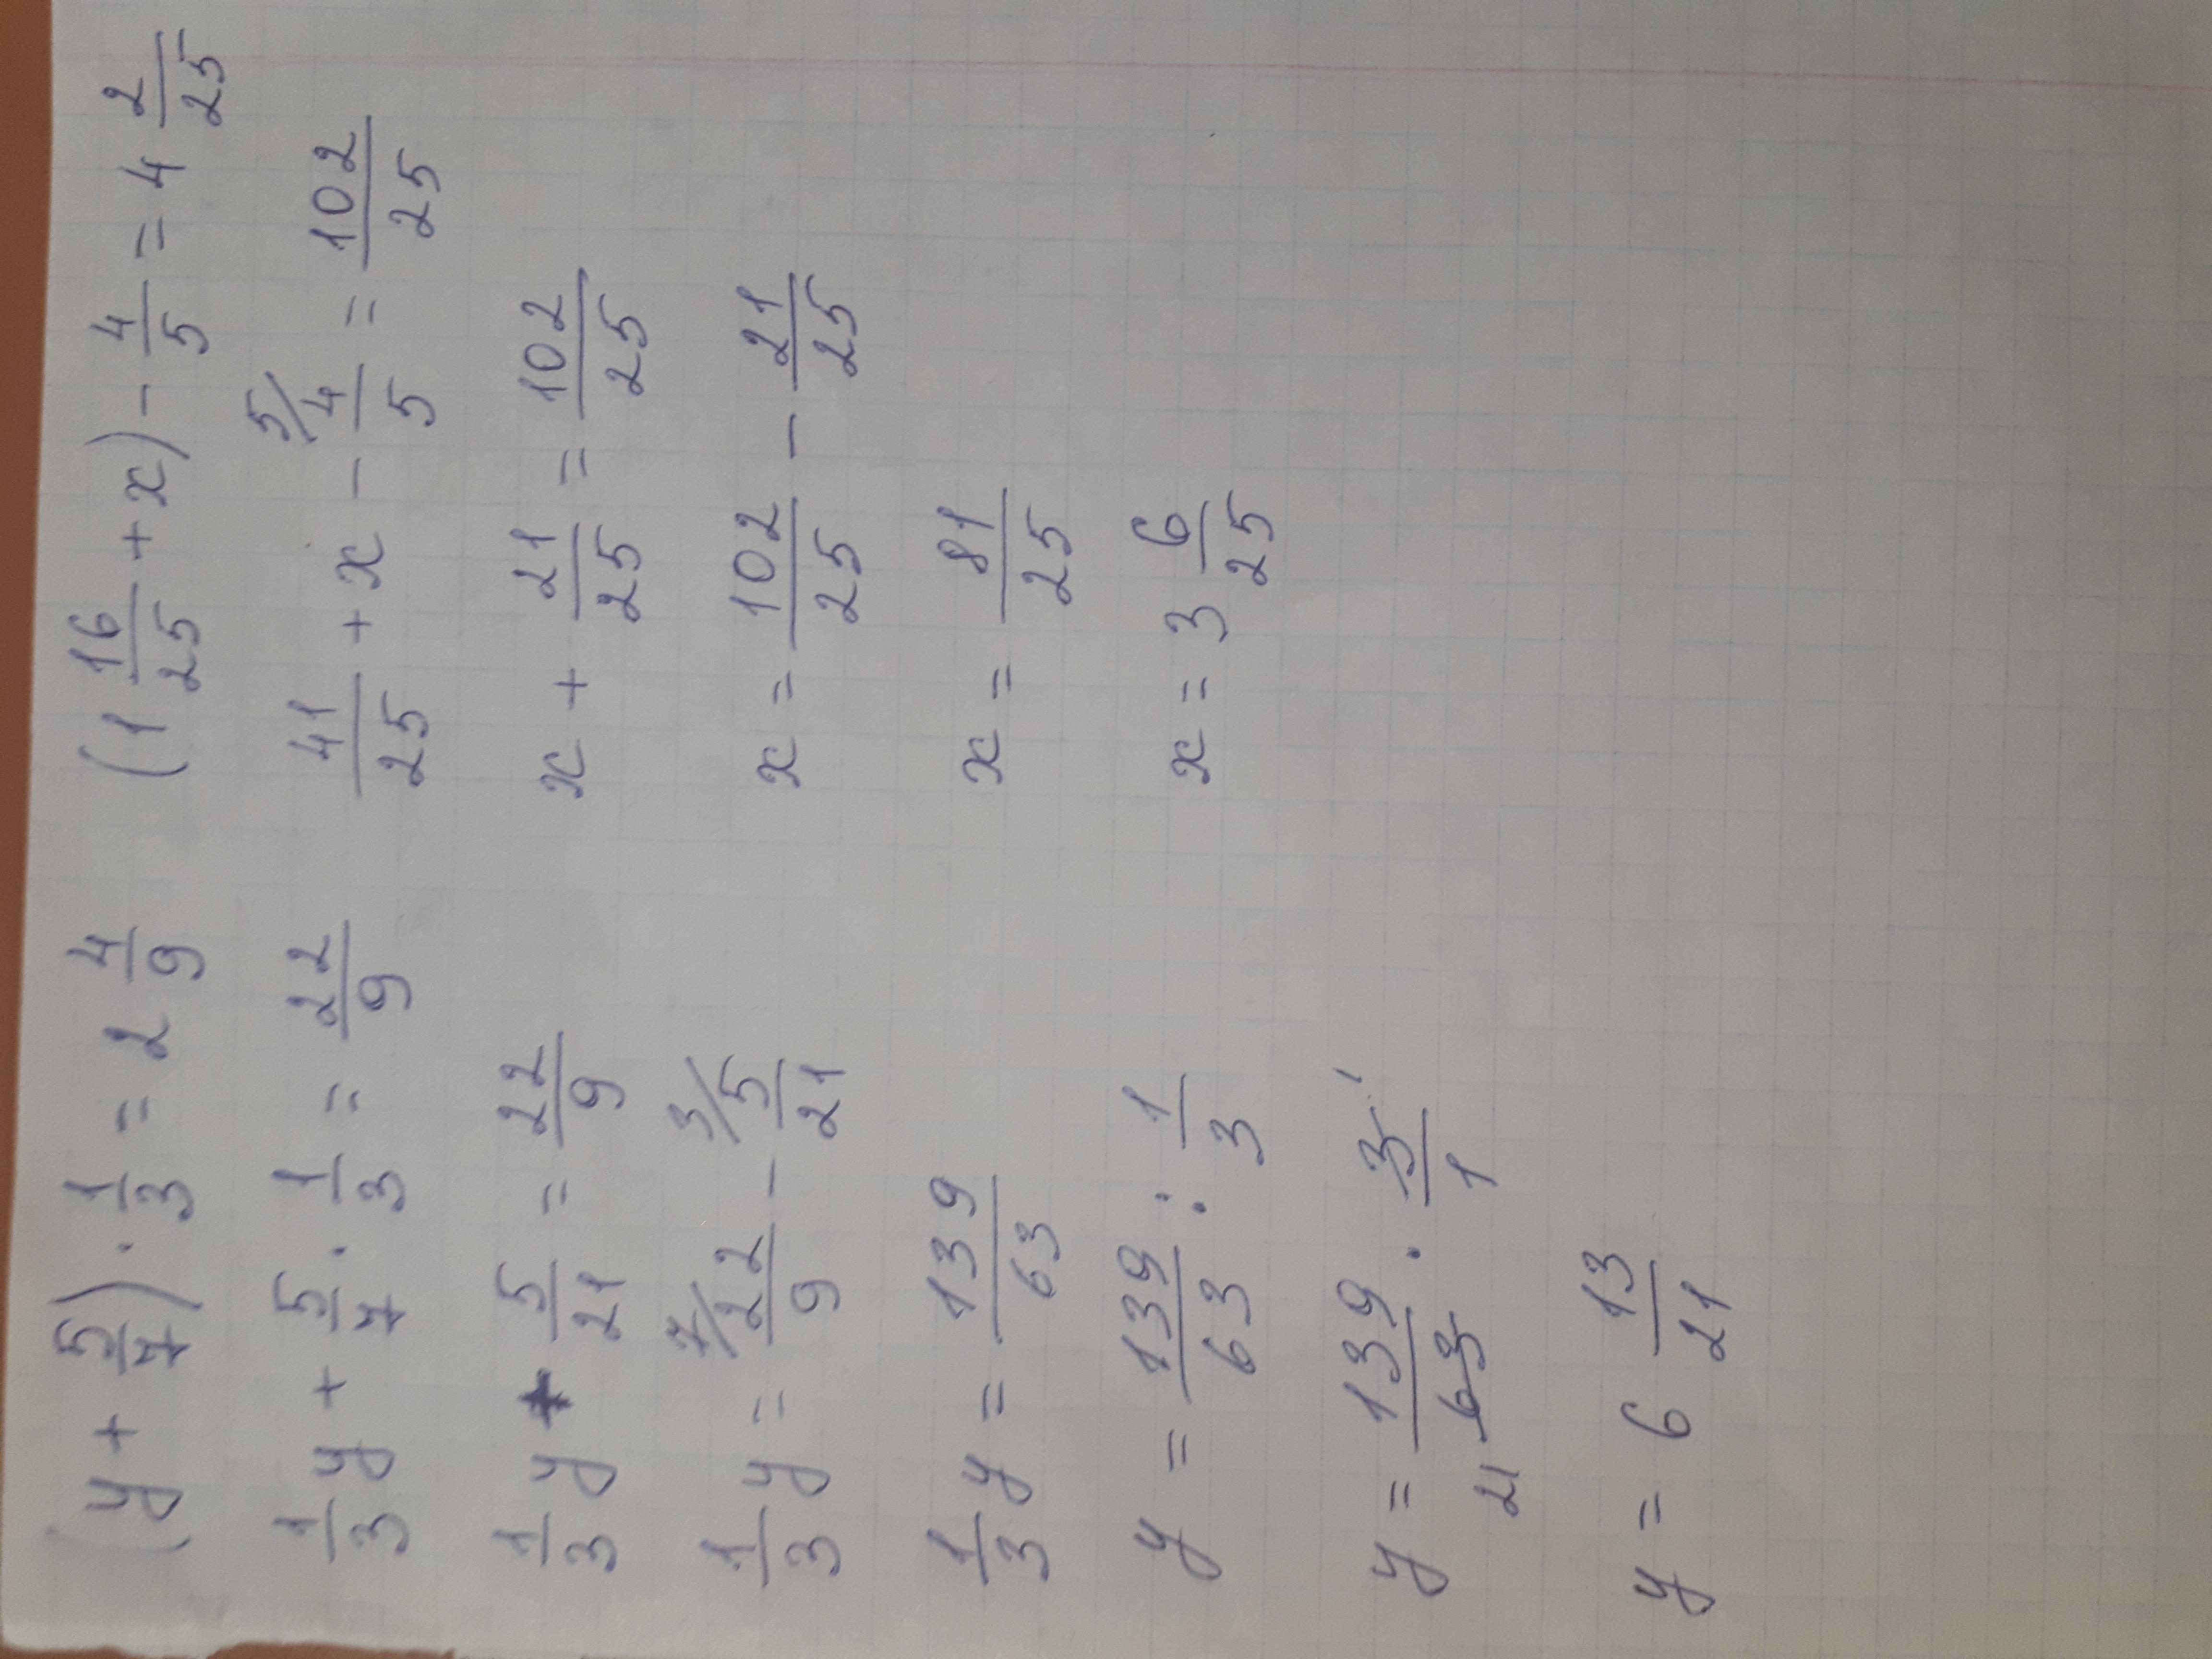 (y + 5/7) · 1/3 = 2 4/9
1/3 y + 5/7 · 1/3 = 22/9
1/3 y + 5/21 = 22/9
1/3 y = 7/ 22/9 - 3/ 5/21
1/3 y = 139/63
y = 139/63 : 1/3
y = 139/63 21 · 3/1 1
y = 6 13/21
(1 16/25 + x) - 4/5 = 4 2/25
41/25 + x - 5/ 4/5 = 102/25
x + 21/25 = 102/25
x = 102/25 - 21/25
x = 81/25
x = 3 6/25